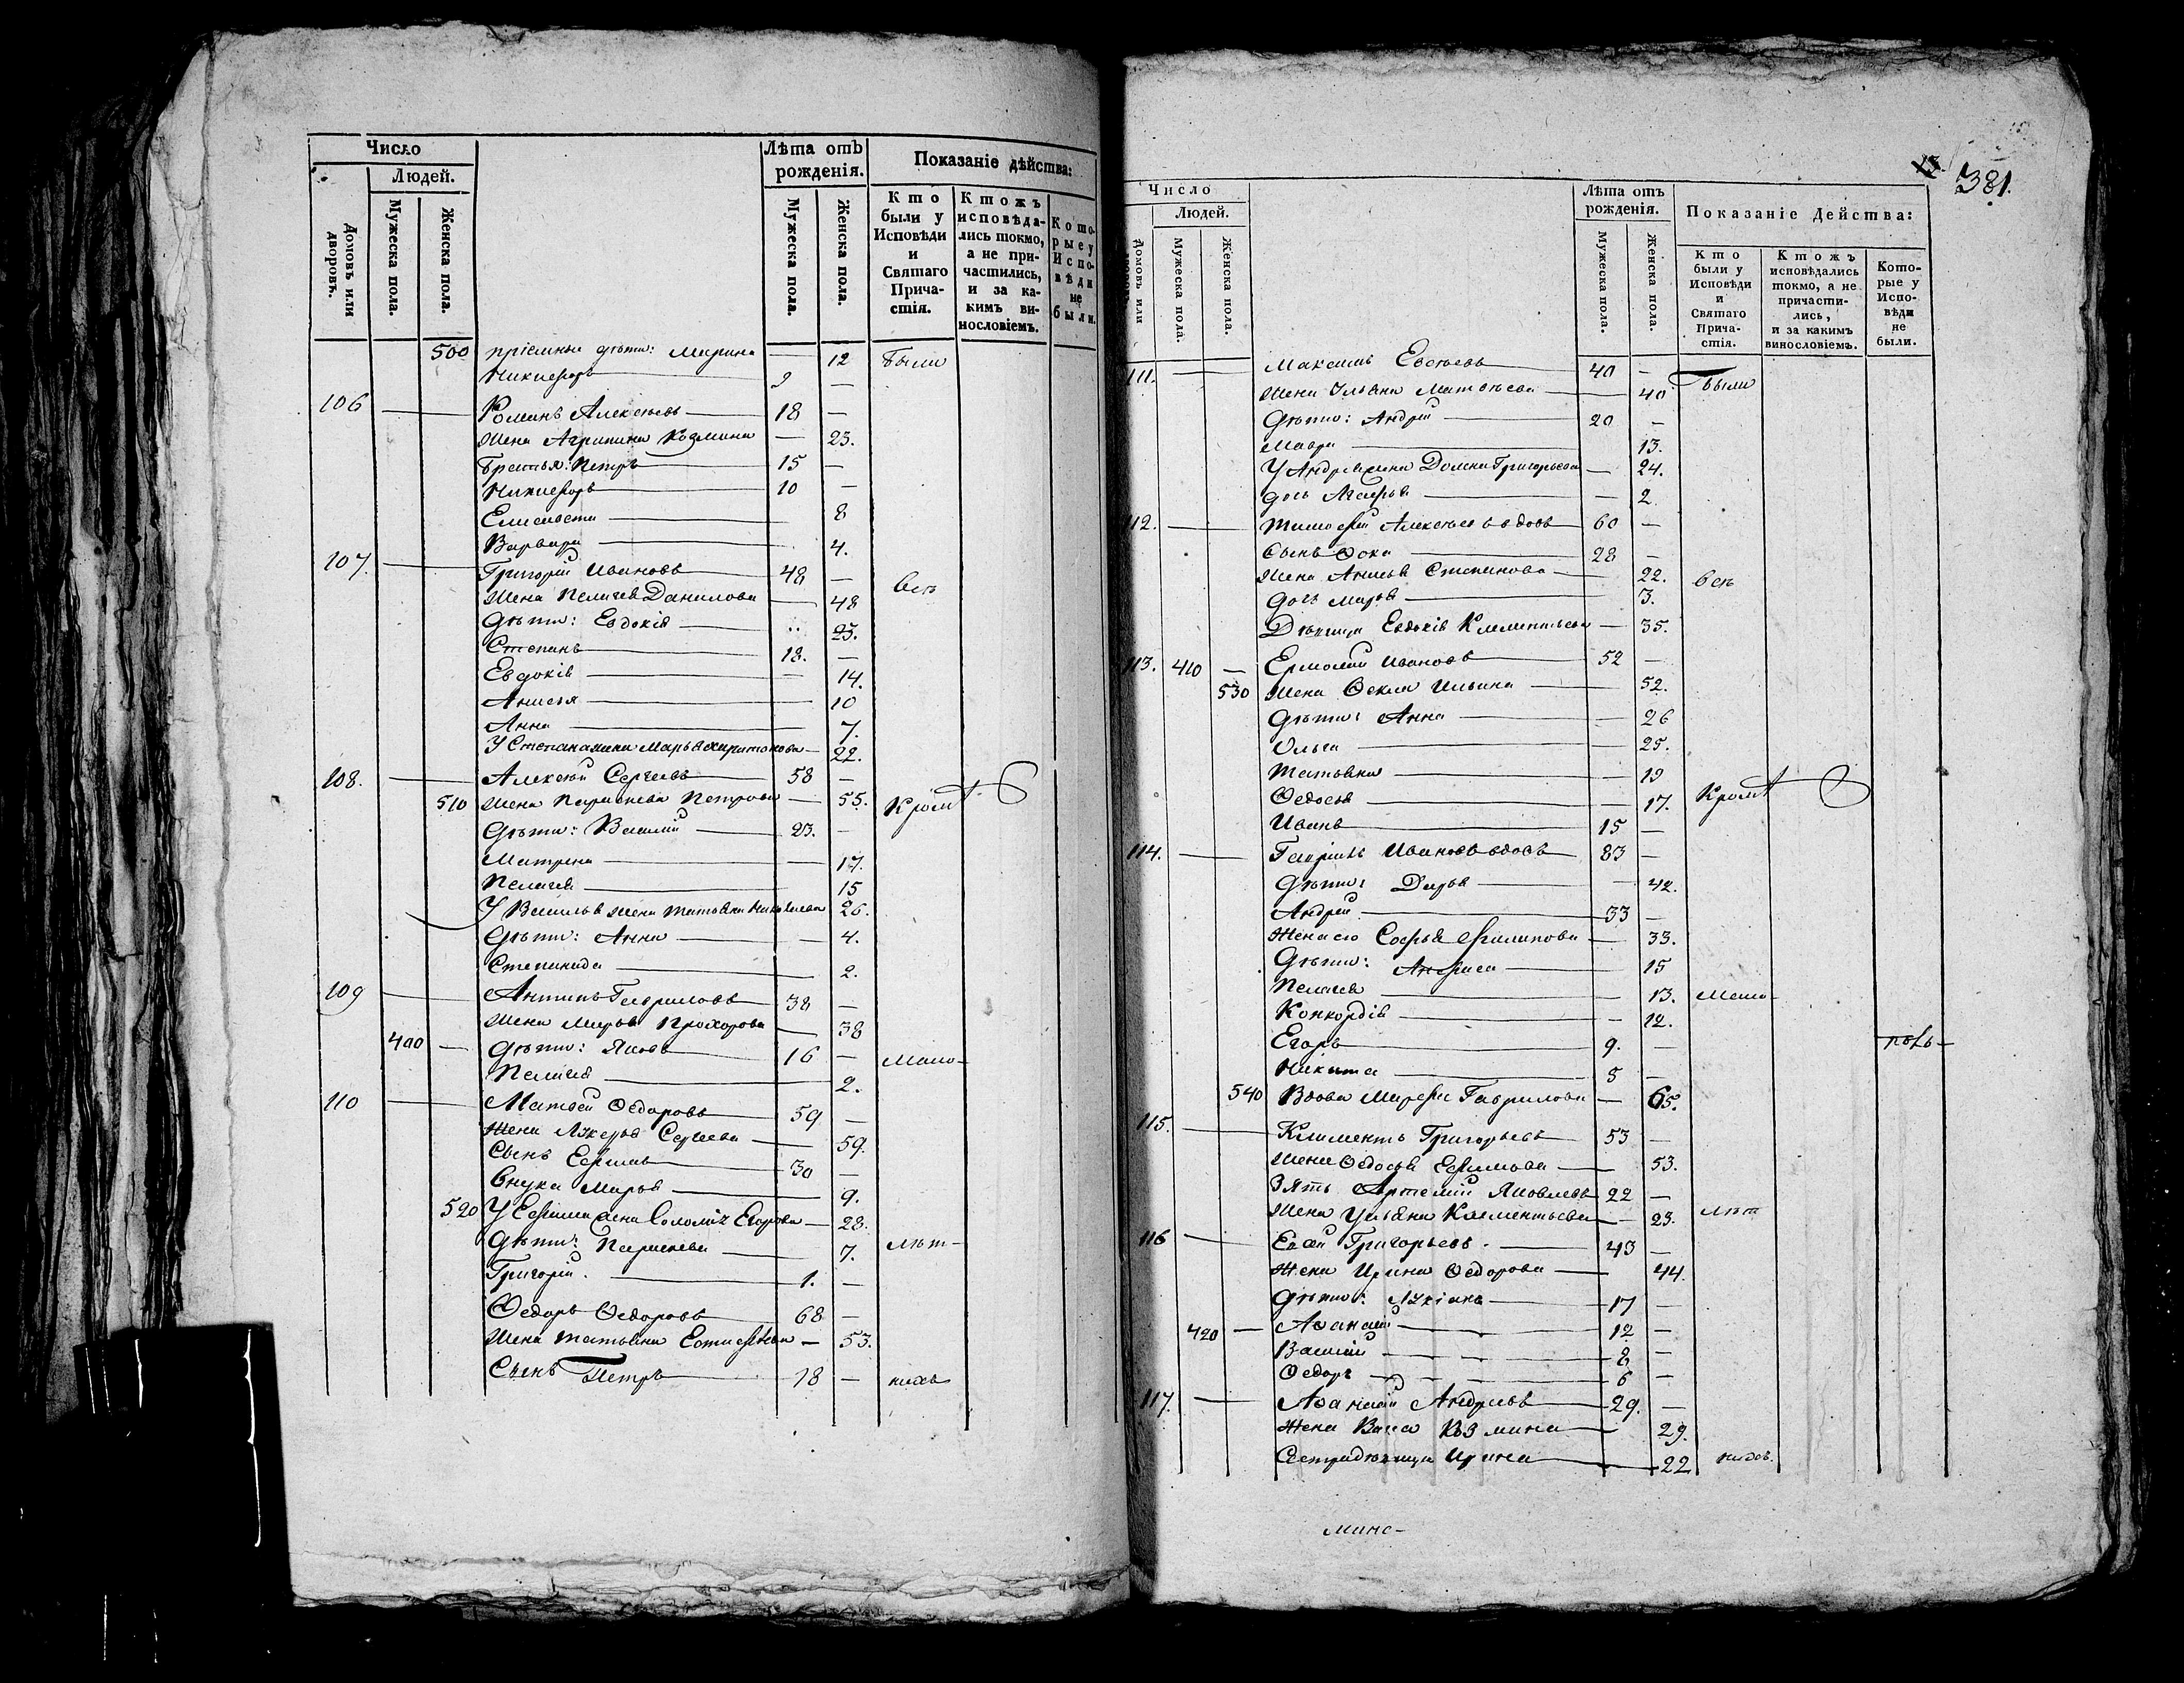 Число
Людей.
Домовъ или дворовъ.
Мужеска пола.
Женска пола.
Лѣта отъ рожденія.
Мужеска пола.
Женска пола.
Показаніе дѣйства:
Кто были у Исповѣди и Святаго Причастія.
Ктожъ исповѣдались токмо, а не причастились, и за какимъ винословіемъ.
Которые у Исповѣди не были.
500 пріемныи дѣти: Марина — 12 Были
Никифоръ 9 —
106 — Романъ Алексѣевъ 18 —
Жена Агрипина Козмина — 23.
Братья: Петръ 15 —
Никифоръ 10 —
Елисавета 8
Варвара 4.
107. — Григорій Ивановъ 48 —
Жена Пелагея Данилова — 48 всѣ
Дѣти: Евдокія 23.
Степанъ 18. —
Евдокія — 14.
Анисья 10
Анна 7.
У Степана жена Марья Харитонова — 22.
108. — Алексѣй Сергѣевъ 58 —
510 Жена Парасκева Петрова — 55. Кромѣ
Дѣти: Василій 23. —
Матрена — 17.
Пелагея 15
У Василья жена Татьяна Николаева 26.
Дѣти: Анна — 4.
Степанида 2.
109 — Антипъ Гавриловъ 38 —
Жена Марья Прохорова — 38
400 — Дѣти: Яковъ 16 — мало-
Пелагея 2.
110 — Матвей Ѳедоровъ 59 —
Жена Лукерья Сергѣева — 59.
Сынъ Ефимъ 30 —
Внука Марья 9.
520 У Ефима жена Соломія Егорова — 28.
Дѣти: Параскева 7. лѣт-
Григорій. 1. —
Ѳедоръ Ѳедоровъ 68 —
Жена Татьяна Естифѣева — 53.
Сынъ Петръ 18 — нихъ
381.
Число
Людей.
Домовъ или дворовъ.
Мужеска пола.
Женска пола.
Лѣта отъ рожденія.
Мужеска пола.
Женска пола.
Показаніе Дѣйства:
Кто были у Исповѣди и Святаго Причастія.
Ктожъ исповѣдались токмо, а не причастились, и за какимъ винословіемъ.
Которые у Исповѣди не были.
111. — Максимъ Евсѣевъ 40 —
Жена Ульяна Матвѣева 40 Были
Дѣти: Андрей 20 —
Мавра 13.
У Андрея жена Домна Григорьева — 24.
дочь Агафья — 2.
112. — Тимофей Алексѣевъ вдовъ 60 —
Сынъ Ѳока 28 —
Жена Анисья Степанова 22. всѣ
Дочь Марья 3.
Дѣвица Евдокія Климентьева — 35.
113. 410 — Ермолай Ивановъ 52 —
530 Жена Ѳекла Ильина 52.
Дѣти: Анна — 26
Ольга — 25.
Татьяна — 19
Ѳедосья 17. Кромѣ
Иванъ 15 —
114. — Гаврилъ Ивановъ вдовъ 83 —
Дѣти: Дарья — 42.
Андрей 33 —
Жена его Софья Филипова — 33.
Дѣти: Анфиса 15
Пелагея — 13. мало-
Конкордія — 12.
Егоръ 9. —
Никита 5 —
540 Вдова Марфа Гаврилова — 65.
115. — Климентъ Григорьевъ 53 —
Жена Ѳедосья Ефимова — 53.
Зять Артемій Яковлевъ 22 —
Жена Ульяна Климентьева — 23. лѣт
116 — Евсей Григорьевъ. 43 —
Жена Ирина Ѳедорова 44.
Дѣти: Лукіанъ 17 —
420 — Аѳанасій 12 —
Василій 8 —
Ѳедоръ 6 —
117. — Аѳанасій Андреевъ 29. —
Жена Васса Козмина 29.
Сестра дѣвица Ирина 22 нихъ.